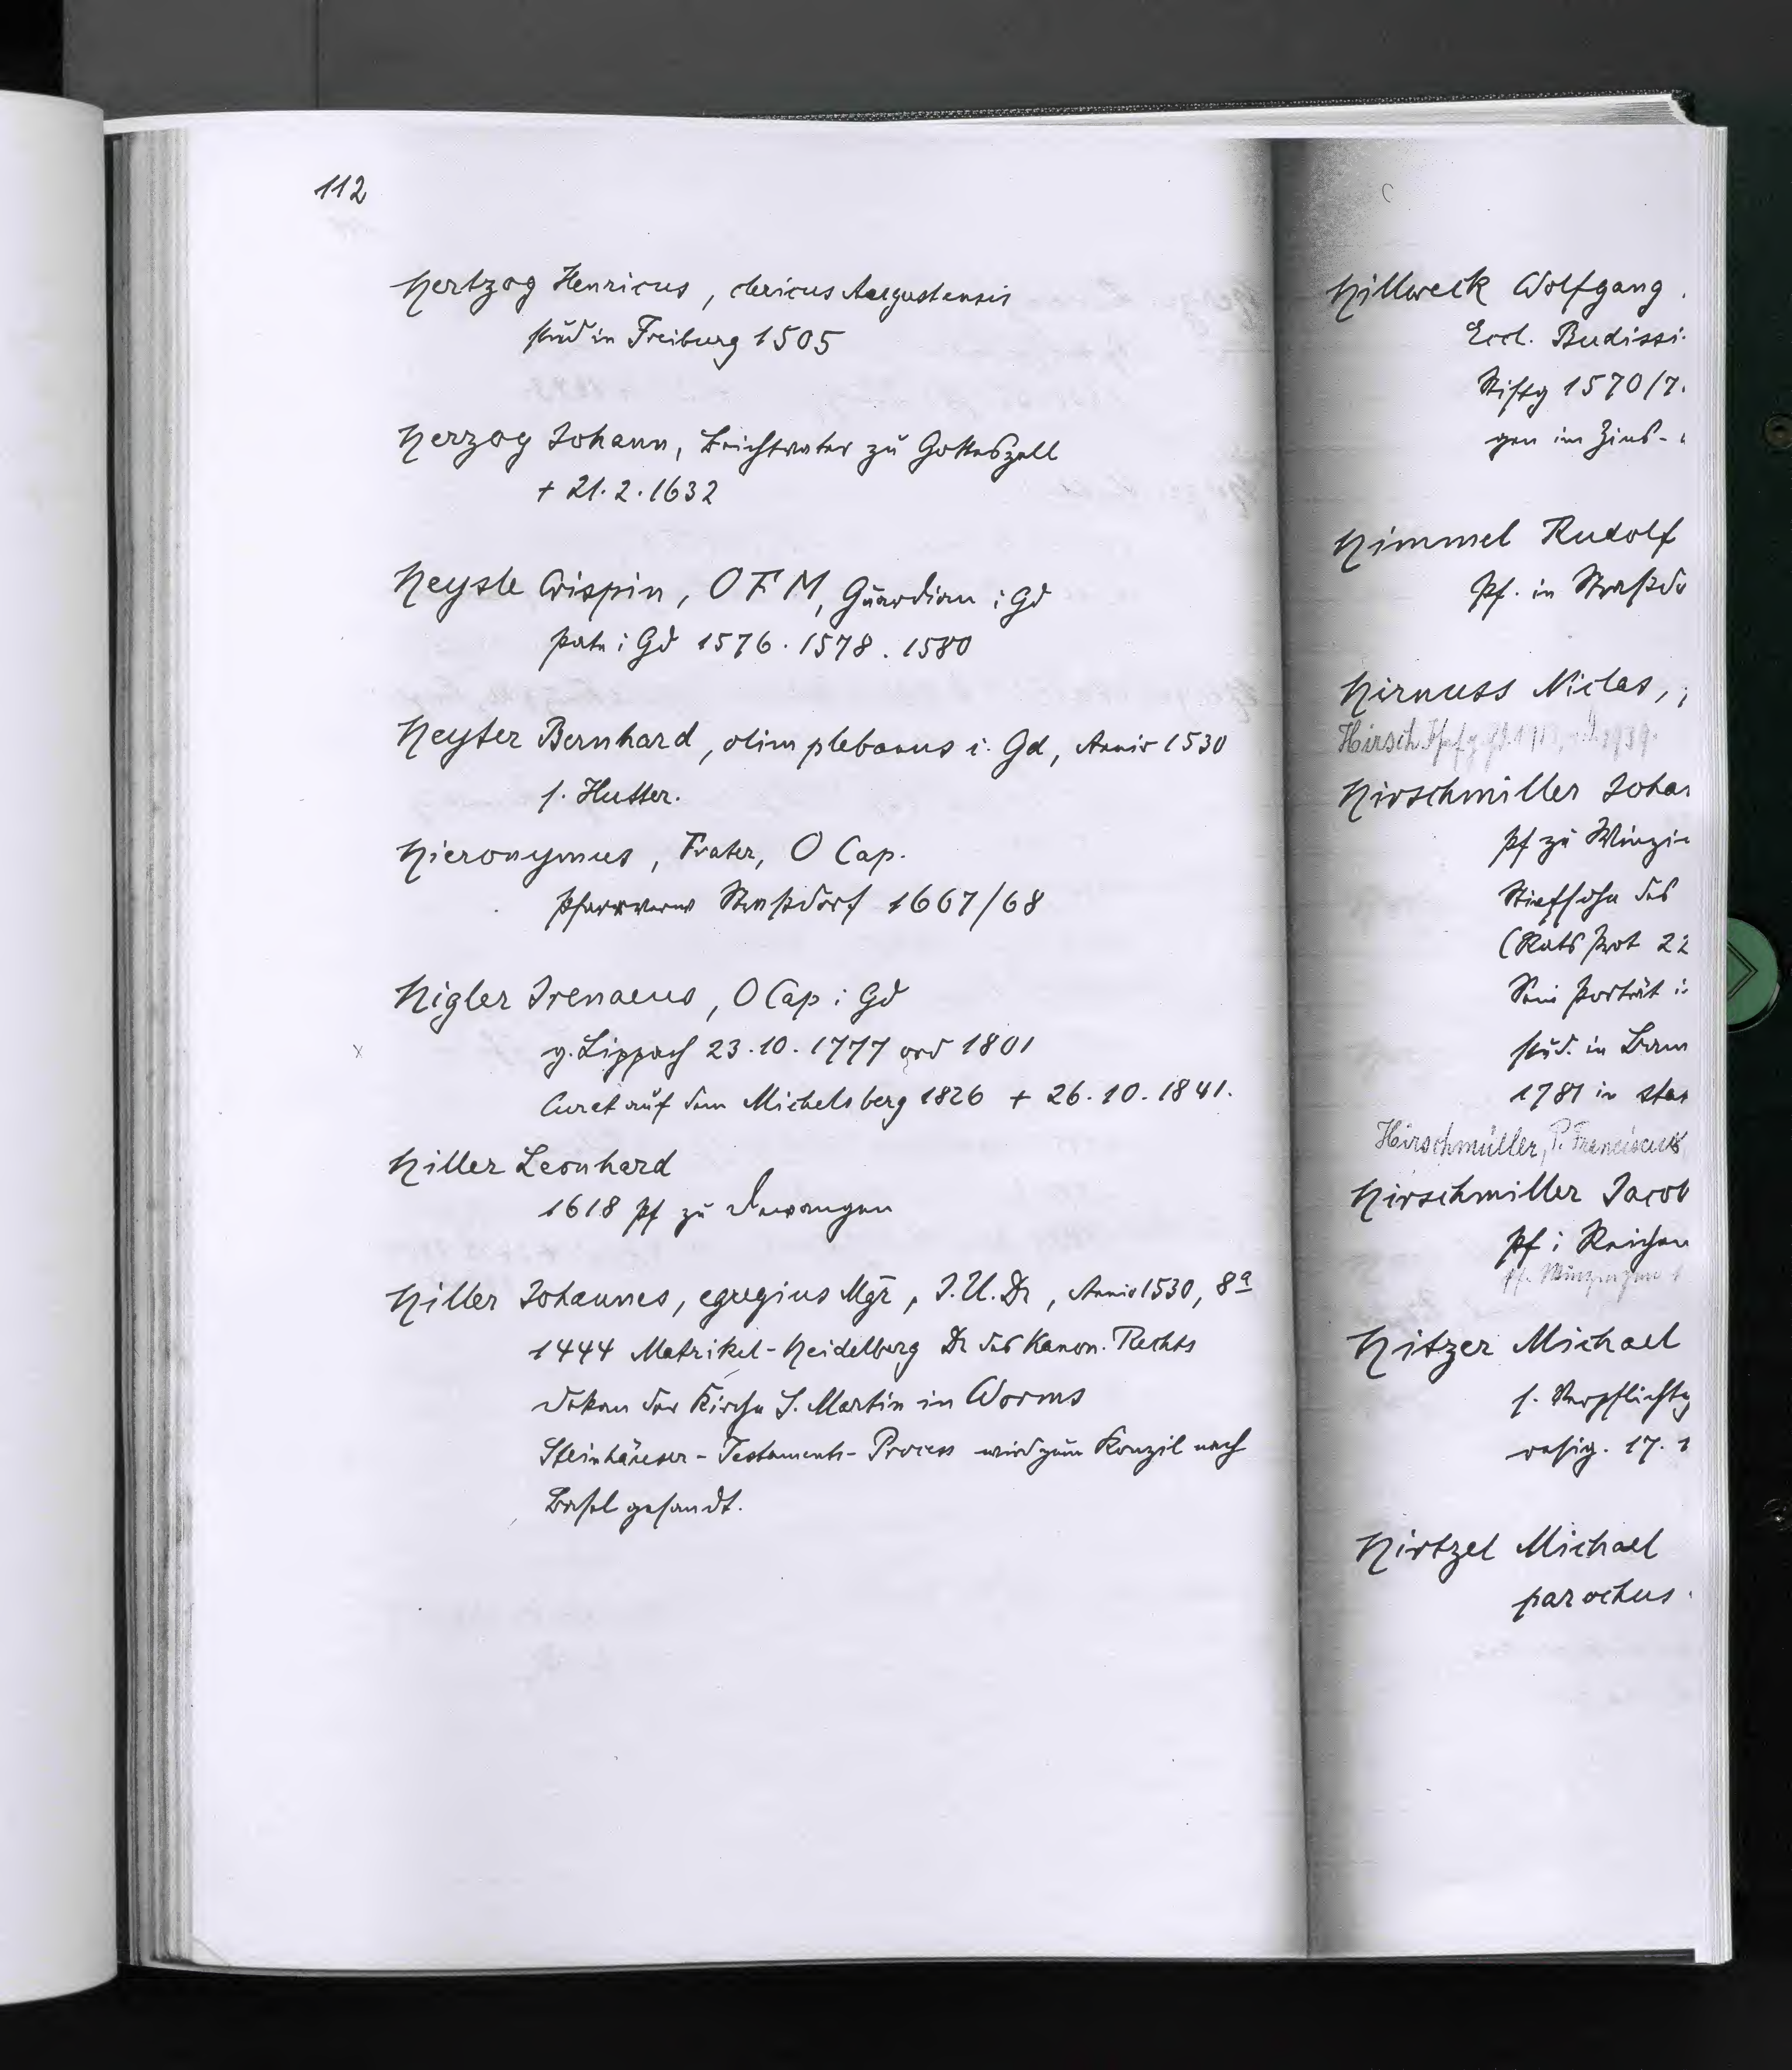 112
Hertzog Henricus, clericus Augustensis
stud in Freiburg 1505
Herzog Johann, Beichtvater zu Gotteszell
+ 21.2.1632
Heysle Crispin, OFM, Guardian i Gd
Pate i Gd 1576. 1578. 1580
Heyter Bernhard, olim plebanus i. Gd, Anniv 1530
s. Hutter.
Hieronymus, Frater, O Cap.
Pfarrverw Straßdorf 1667/68
Higler Irenaeus, O Cap i Gd
g. Lippach 23.10.1777 ord 1801
Curat auf dem Michelsberg 1826 + 26.10.1841.
Hiller Leonhard
1618 Pf zu Dewangen
Hiller Johannes, egregius Mgr, J.U.Dr, Anniv 1530, 8a
1444 Matrikel-Heidelberg Dr des Kanon. Rechts
Dekan der Kirche S. Martin in Worms
Steinhäuser-Testaments-Process wird zum Konzil nach
Basel gesandt.
Hillweck Wolfgang
Eccl. Budissi
Stiftg 1570/7
gen im Zins-
Himmel Rudolf
Pf. in Straßdo
Hirnuss Niclas,
Hirsch 1939.
Hirschmiller Joha
Pf zu Winzin
Stiefsohn des
(Rats Prot 22
Sein Porträt i
stud. in
1781 in
Hirschmüller, P. Franciscus
Hirschmiller Jacob
Pf i Reichen
Pf.
Hitzer Michael
s. Verpflichtg
resig. 17. 1
Hirtzel Michael
parochus